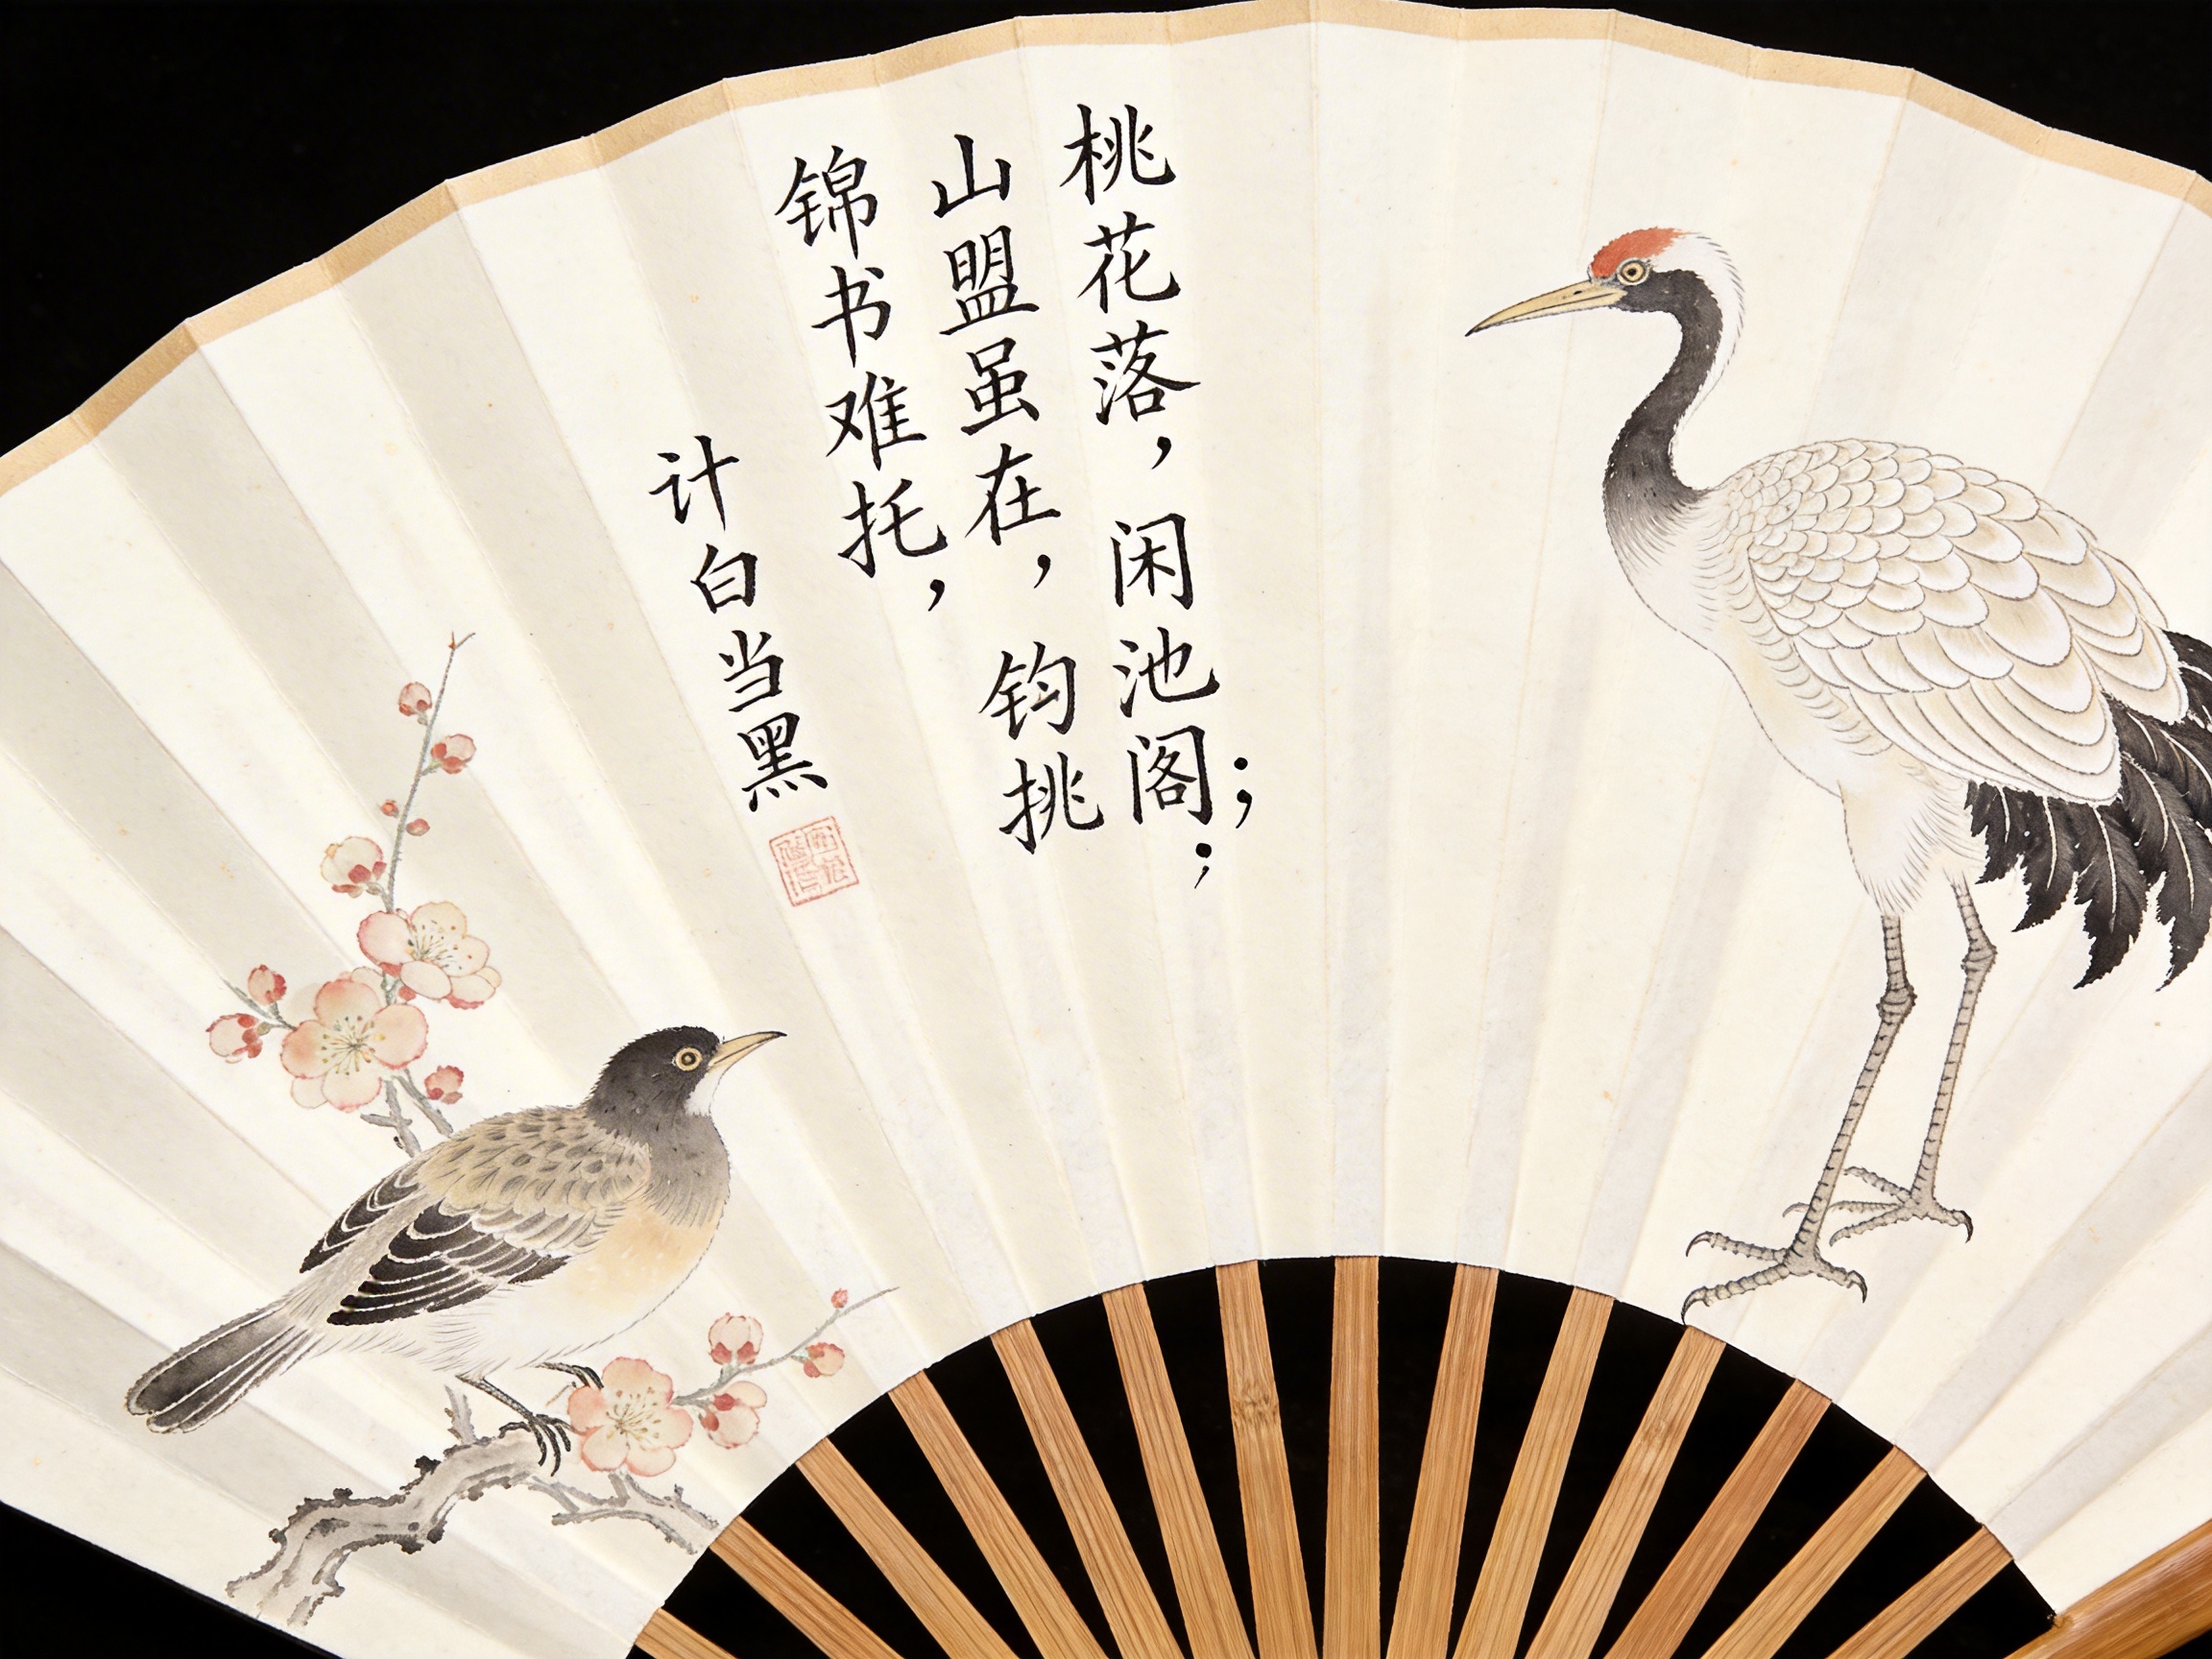 桃花落，闲池阁；
山盟虽在，钧挑；
锦书难托，
计白当黑